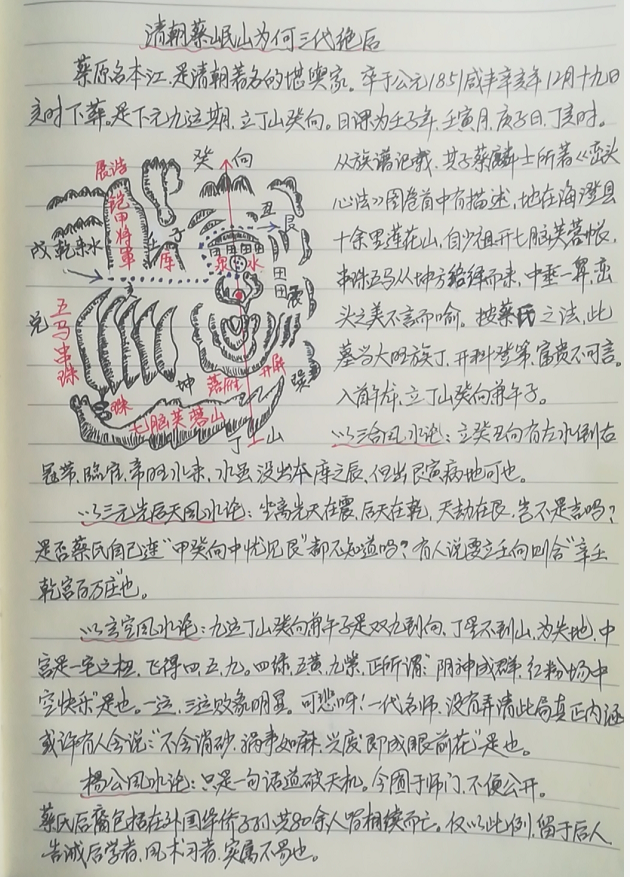 清朝蔡岷山为何三代绝后
蔡原名本江,是清朝著名的堪舆家。卒于公元1851咸丰辛亥年12月十九日
亥时下葬。是下元九运期,立丁山癸向。日课为壬子年,壬寅月,庚子日,丁亥时。
从族谱记载,其子蔡麟士所著《峦头
心法》图卷首中有描述,地在海澄县
十余里莲花山,自少祖开七脑芙蓉帐,
串珠五马从坤方而来,中垂一算,峦
头之美不言而喻。按蔡氏之法,此
墓当大旺族丁,开科登第,富贵不可言。
入首,立丁山癸向兼午子。
以三合风水论:立癸丑向有左水倒右
冠带,临官,帝旺水来,水虽没出本库之辰,但出艮寅病地可也。
以三元先后天风水论:坐离先天在震,后天在乾,天劫在艮,岂不是吉吗?
是否蔡氏自己连“甲癸向中忧见艮”都不知道吗?有人说要立壬向则合“辛壬
乾宫百万庄”也。
以玄空风水论:九运丁山癸向兼午子是双九到向,丁星不到山,为失地,中
宫是一宅之极,飞得四、五、九。四绿,五黄,九紫,正所谓:“阴神成群,红粉场中
空快乐”是也。一运,三运败象明显。可悲呀!一代名师,没有弄清此局真正内涵
或许有人会说:“不会消砂,祸事如麻,兴废即成眼前花”是也。
杨公风水论:只是一句话道破天机。今囿于师门,不便公开。
蔡氏后裔包括在外国华侨子孙共80余人皆相续而亡。仅以此例,留于后人
告诫后学者,风术习者,实属不易也。
癸向
展浩
铠甲将军
库
子
丑
艮
戌乾来水
泉水
田
田
田
震
兑
五马串珠
坤
落雁
开屏
巽
珠
七脑芙蓉山
丁山